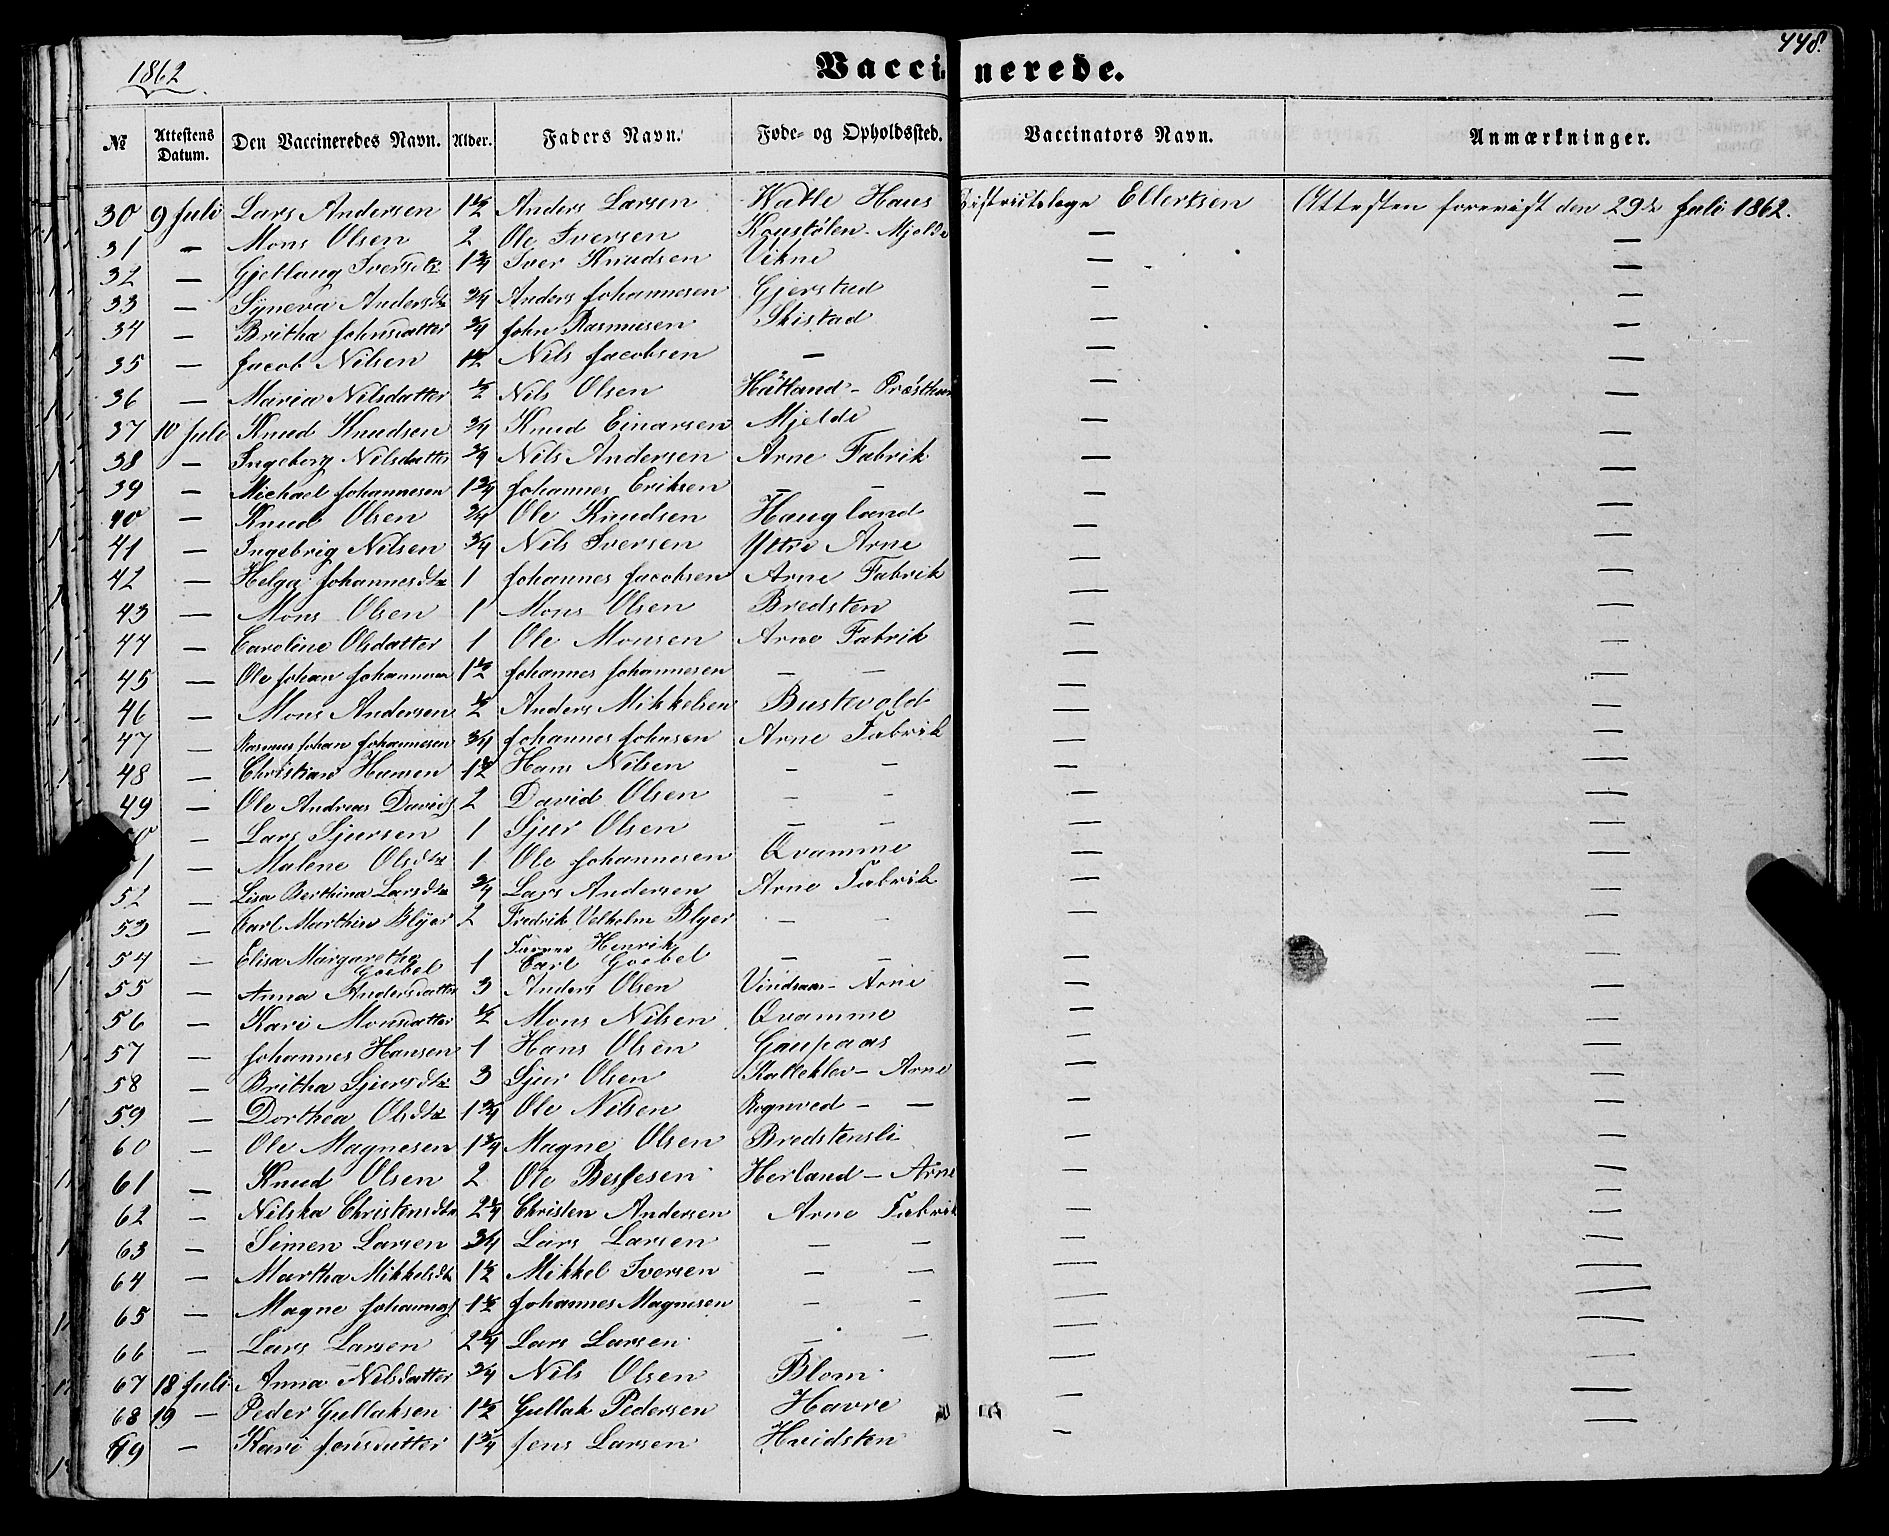 1862 Vaccinerede. 448.
№ Attestens Datum. Den Vaccineredes Navn. Alder. Faders Navn. Føde- og Opholdssted. Vaccinators Navn. Anmærkninger.
30 9 Juli Lars Andersen 1 1/2 Anders Larsen Katle Haus Distriktslæge Ellertsen Attesten forevist den 29de Juli 1862.
31 — Mons Olsen 2 Ole Iversen Koustølen - Mjelde — —
32 — Gjetlaug Iversdtr 1 3/4 Iver Knudsen Vikne — —
33 — Syneva Andersdtr 3/4 Anders Johannesen Gjerstad — —
34 — Britha Johnsdatter 3/4 John Rasmusen Skistad — —
35 — Jacob Nilsen 1 1/2 Nils Jacobsen — — —
36 — Maria Nilsdatter 1/2 Nils Olsen Håtland - — —
37 10 Juli Knud Knudsen 3/4 Knud Einarsen Mjelde — —
38 — Ingeborg Nilsdatter 3/4 Nils Andersen Arne Fabrik — —
39 — Michael Johannesen 1 3/4 Johannes Eriksen — — — —
40 — Knud Olsen 3/4 Ole Knudsen Haugland — —
41 — Ingebrig Nilsen 3/4 Nils Iversen Ytre Arne — —
42 — Helga Johannesdtr 1 Johannes Jacobsen Arne Fabrik — —
43 — Mons Olsen 1 Mons Olsen Bredsten — —
44 — Caroline Olsdatter 1 Ole Monsen Arne Fabrik — —
45 — Ole Johan Johannesen 1 1/2 Johannes Johannesen — — — —
46 — Mons Andersen 1/2 Anders Mikkelsen Bustevold — —
47 — Rasmus Johan Johannesen 3/4 Johannes Johnsen Arne Fabrik — —
48 — Christian Hansen 1 1/2 Hans Nilsen — — — —
49 — Ole Andreas Davids 2 David Olsen — — — —
50 — Lars Sjursen 1 Sjur Olsen — — — —
51 — Malene Olsdtr 1 Ole Johannesen Qvamme — —
52 — Lisa Berthina Larsdtr 3/4 Lars Andersen Arne Fabrik — —
53 — Carl Marthin Blyer 2 Fredrik Velhelm Blyer — — — —
54 — Elisa Margaretha Goebel 1 Farver Henrik Carl Goebel — — — —
55 — Anna Andersdatter 3 Anders Olsen Vindsaas - Arne — —
56 — Kari Monsdatter 1/2 Mons Nilsen Qvamme — —
57 — Johannes Hansen 1 Hans Olsen Gaupaas — —
58 — Britha Sjursdtr 3 Sjur Olsen Kalleklev - Arne — —
59 — Dorthea Olsdtr 1 3/4 Ole Nilsen Rognved - — — —
60 — Ole Magnesen 1 3/4 Magne Olsen Bredstensli — —
61 — Knud Olsen 2 Ole Besfesen Herland - Arne — —
62 — Nilska Christensdtr 2 1/4 Christen Andersen Arne Fabrik — —
63 — Simen Larsen 3/4 Lars Larsen — — — —
64 — Martha Mikkelsdtr 1 1/2 Mikkel Iversen — — — —
65 — Magne Johannes 1 1/2 Johannes Magnesen — — — —
66 — Lars Larsen 2 1/4 Lars Larsen — — — —
67 18 Juli Anna Nilsdatter 3/4 Nils Olsen Blom — —
68 19 — Peder Gullaksen 1 1/2 Gullak Pedersen Havre — —
69 — Kari Jensdatter 1 3/4 Jens Larsen Hvidsten — —